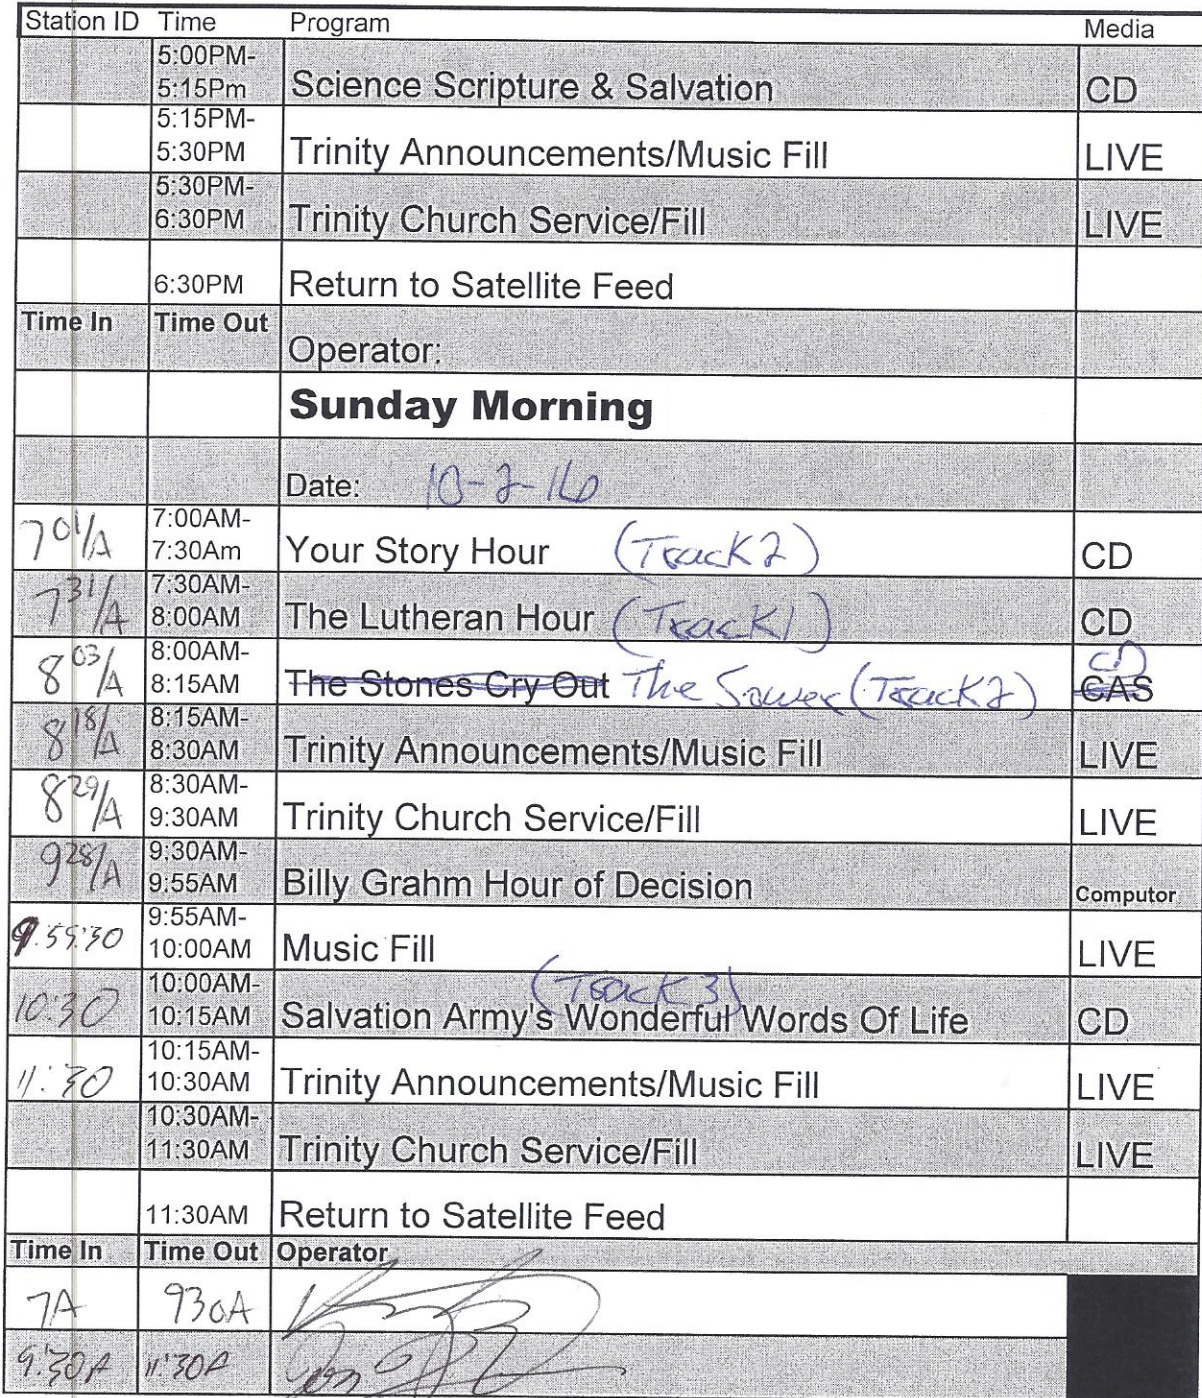 Station ID Time Program Media
5:00PM-
5:15Pm Science Scripture & Salvation CD
5:15PM-
5:30PM Trinity Announcements/Music Fill LIVE
5:30PM-
6:30PM Trinity Church Service/Fill LIVE
6:30PM Return to Satellite Feed
Time In Time Out
Operator:
Sunday Morning
Date: 10-2-16
7:00AM-
7 01/A 7:30Am Your Story Hour (Track 2) CD
7:30AM-
7 31/A 8:00AM The Lutheran Hour (Track 1) CD
8:00AM- CD
8 03/A 8:15AM The Stones Cry Out The Sower (Track 2) CAS
8:15AM-
8 18/A 8:30AM Trinity Announcements/Music Fill LIVE
8:30AM-
8 29/A 9:30AM Trinity Church Service/Fill LIVE
9:30AM-
9 28/A 9:55AM Billy Grahm Hour of Decision Computor
9:55AM-
9:55:30 10:00AM Music Fill LIVE
10:00AM- (Track 3)
10:30 10:15AM Salvation Army's Wonderful Words Of Life CD
10:15AM-
11:30 10:30AM Trinity Announcements/Music Fill LIVE
10:30AM-
11:30AM Trinity Church Service/Fill LIVE
11:30AM Return to Satellite Feed
Time In Time Out Operator
7A 930A
9:30A 11:30A